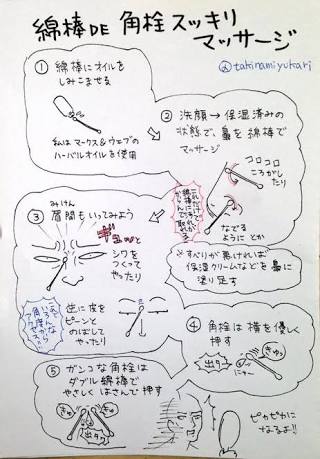 綿棒DE 角栓スッキリ
マッサージ
@takinamiyukari
① 綿棒にオイルを
しみこませる
私はマークス&ウェブの
ハーバルオイルを使用
② 洗顔→保湿済みの
状態で、鼻を綿棒で
マッサージ
コロコロ
ころがし
たり
なでる
ように とか
※すべりが悪ければ
保湿クリームなどを鼻に
塗り足す
③ 眉間もいってみよう
みけん
ギュッと
シワを
つくって
やったり
逆に皮を
ピーンと
のばして
やったり
④ 角栓は横を優しく
押す
きゅっ
出タワ
⑤ ガンコな角栓は
ダブル綿棒で
やさしく はさんで押す
きゅ
きゅ
出タワ
ピカピカに
なるよ!!